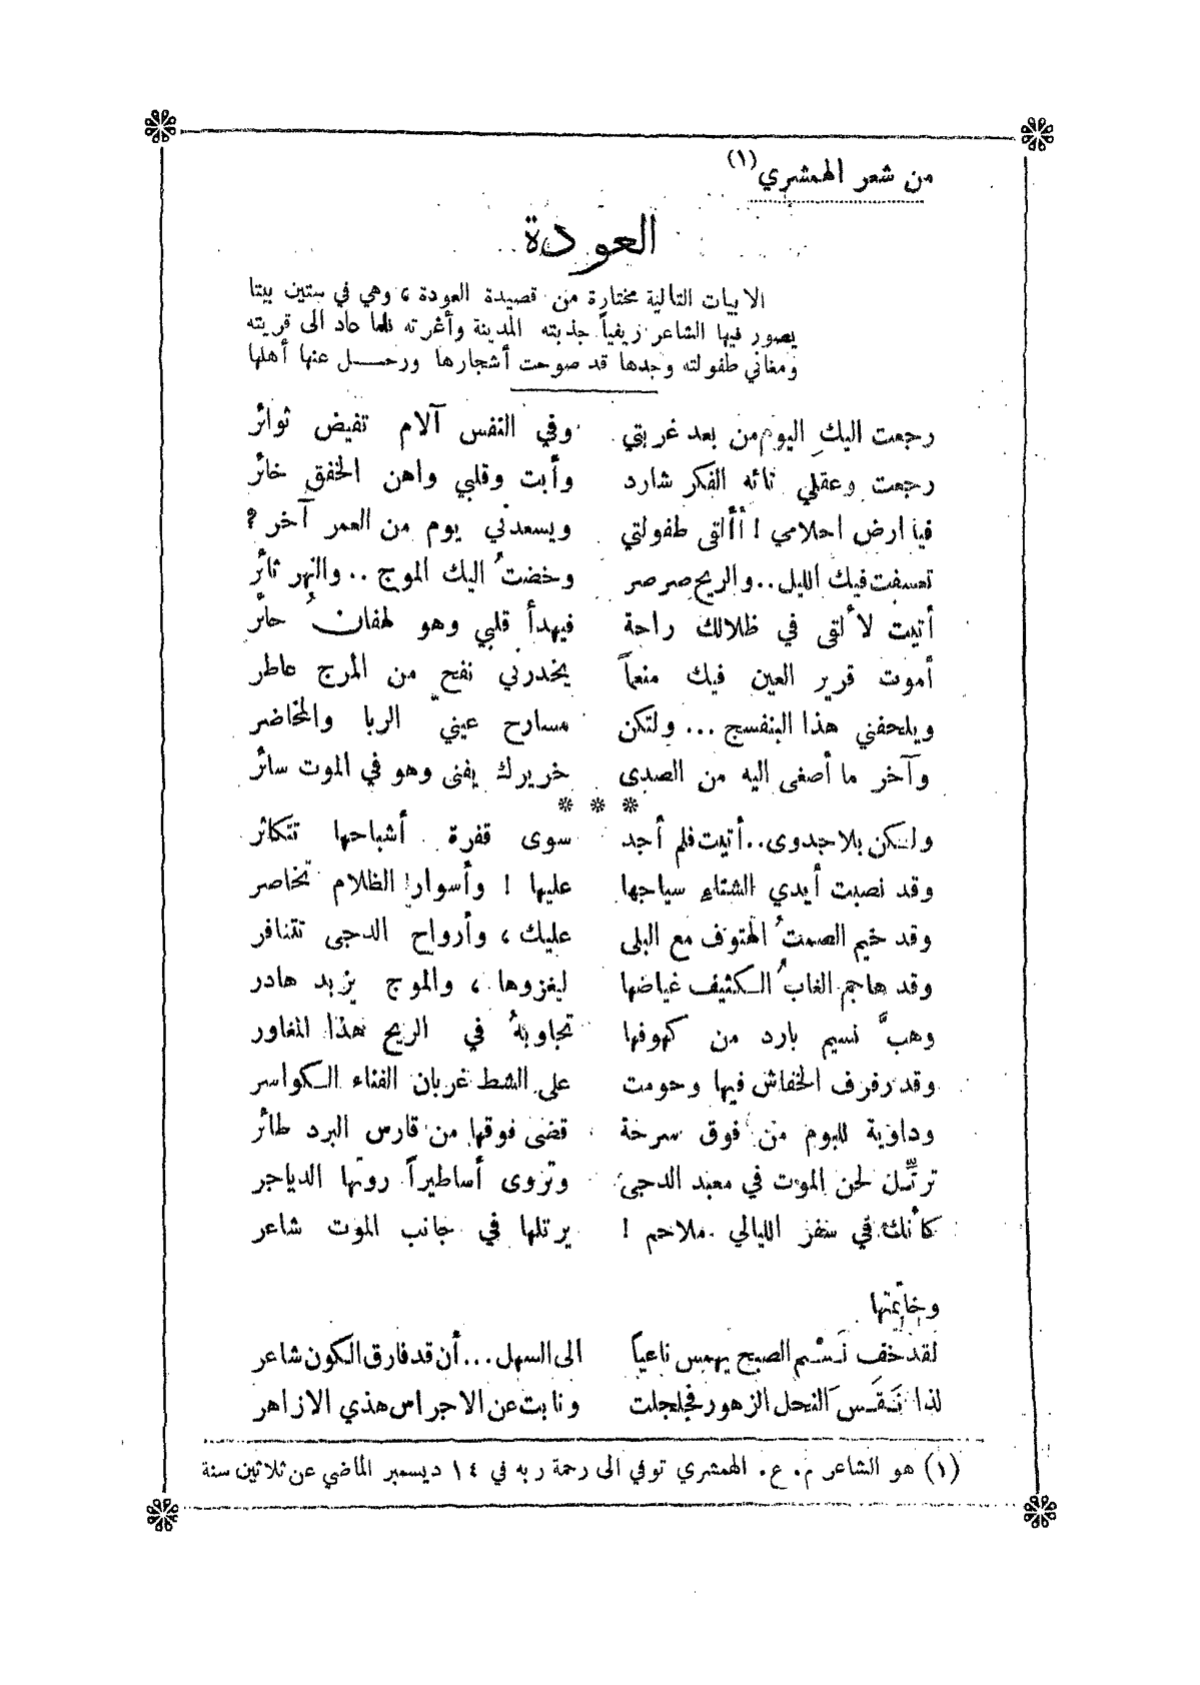 من شعر الهمشري (١)
العودة
الابيات التالية مختارة من قصيدة العودة ، وهي في ستين بيتا
يصور فيها الشاعر ريفياً جذبته المدينة وأغرته فلما عاد الى قريته
ومغاني طفولته وجدها قد صوحت أشجارها ورحل عنها أهلها
رجعت اليكِ اليوم من بعد غربتي وفي النفس آلام تفيض ثوائر
رجعت وعقلي تائه الفكر شارد وأبت وقلبي واهن الخفق خائر
فيا ارض احلامي ! أألقى طفولتي ويسعدني يوم من العمر آخر ؟
تعسفت فيك الليل .. والريح صرصر وخضتُ اليك الموج .. والنهر ثائر
أتيت لألقى في ظلالك راحة فيهدأ قلبي وهو لهفانُ حائر
أموت قرير العين فيك منعماً يخدرني نفح من المرج عاطر
ويلحفني هذا البنفسج ... ولتكن مسارح عيني الربا والمخاضر
وآخر ما أصغى اليه من الصدى خريرك يفنى وهو في الموت سائر
* * *
ولكن بلا جدوى .. أتيت فلم أجد سوى قفرة أشباحها تتكاثر
وقد نصبت أيدي الشتاء سياجها عليها ! وأسوار الظلام تخاصر
وقد خيم الصمتُ الهتوف مع البلى عليك ، وأرواح الدجى تتنافر
وقد هاجم الغابُ الكثيف غياضها ليغزوها ، والموج يزبد هادر
وهبَّ نسيم بارد من كهوفها تجاوبهُ في الريح هذا المغاور
وقد رفرف الخفاش فيها وحومت على الشط غربان الفناء الكواسر
وداوية للبوم من فوق سرحة قضى فوقها من قارس البرد طائر
ترتِّل لحن الموت في معبد الدجى وتروى أساطيراً روتها الدياجر
كأنك في سفر الليالي ملاحم ! يرتلها في جانب الموت شاعر
وخاتمتها
لقد خف نَسْم الصبح يهمس ناعياً الى السهل ... أن قد فارق الكون شاعر
لذا نَقَسَ النحل الزهور فجلجلت ونابت عن الاجراس هذي الازاهر
(١) هو الشاعر م. ع. الهمشري توفي الى رحمة ربه في ١٤ ديسمبر الماضي عن ثلاثين سنة